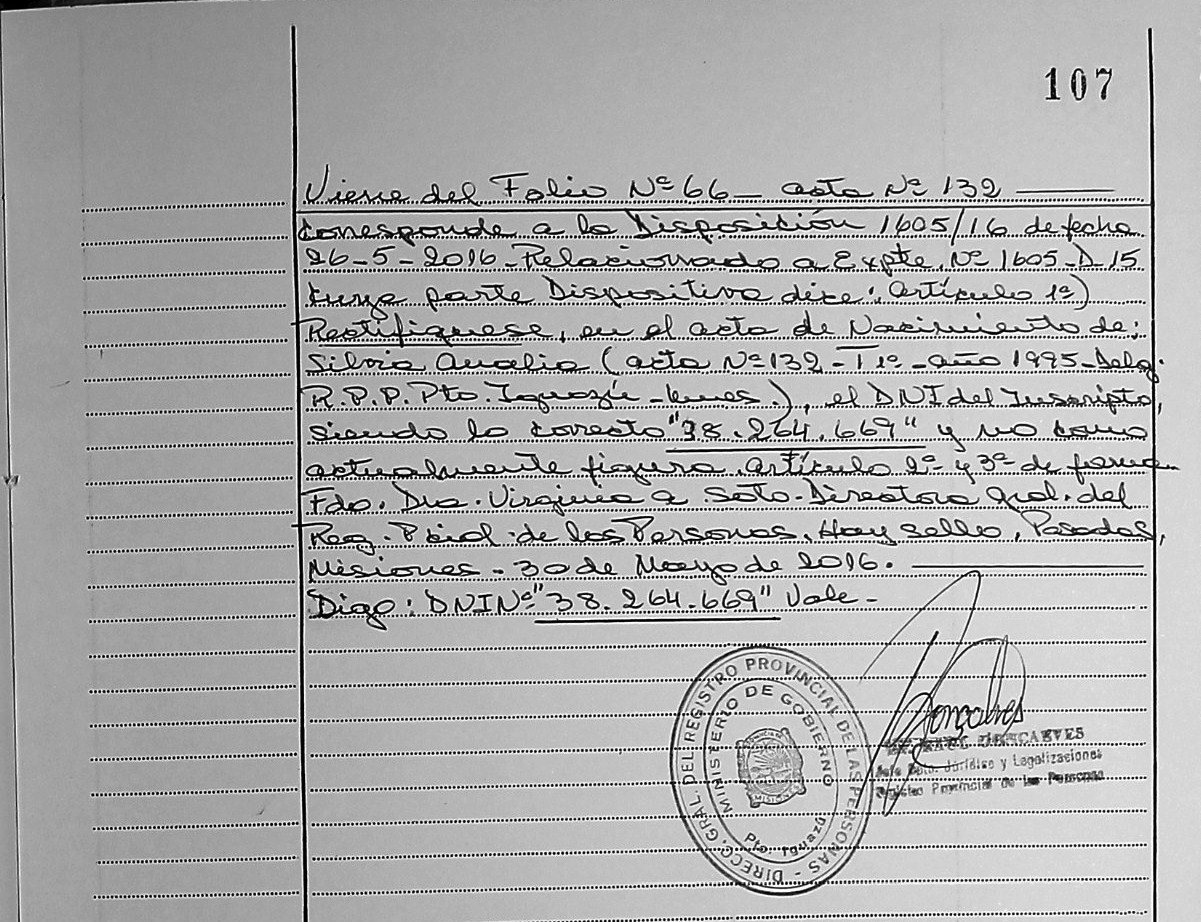 107
Viene del Folio Nº 66 _ acta Nº 132
Corresponde a la Disposición 1605/16 de fecha
26-5-2016 - Relacionado a Expte. Nº 1605-D-15
cuya parte Dispositiva dice: Artículo 1º)
Rectifíquese, en el acta de Nacimiento de:
Silvia Analia (acta Nº 132 - T 1º - año 1995 - Deleg.
R.P.P. Pto. Iguazú - Mnes.), el DNI del Inscripto,
siendo lo correcto "38.264.669" y no como
actualmente figura. Artículo 2º y 3º de forma -
Fdo. Dra. Virginia a Soto - Directora gral. del
Reg. Pcial. de las Personas, Hay sello, Posadas,
Misiones - 30 de Mayo de 2016.
Digo: DNI Nº "38.264.669" Vale -
DIRECC. GRAL. DEL REGISTRO PROVINCIAL DE LAS PERSONAS -
MINISTERIO DE GOBIERNO
MISIONES
Pto. Iguazú
Gonçalves
GONCALVES
Jefe Dpto. Jurídico y Legalizaciones
Registro Provincial de las Personas